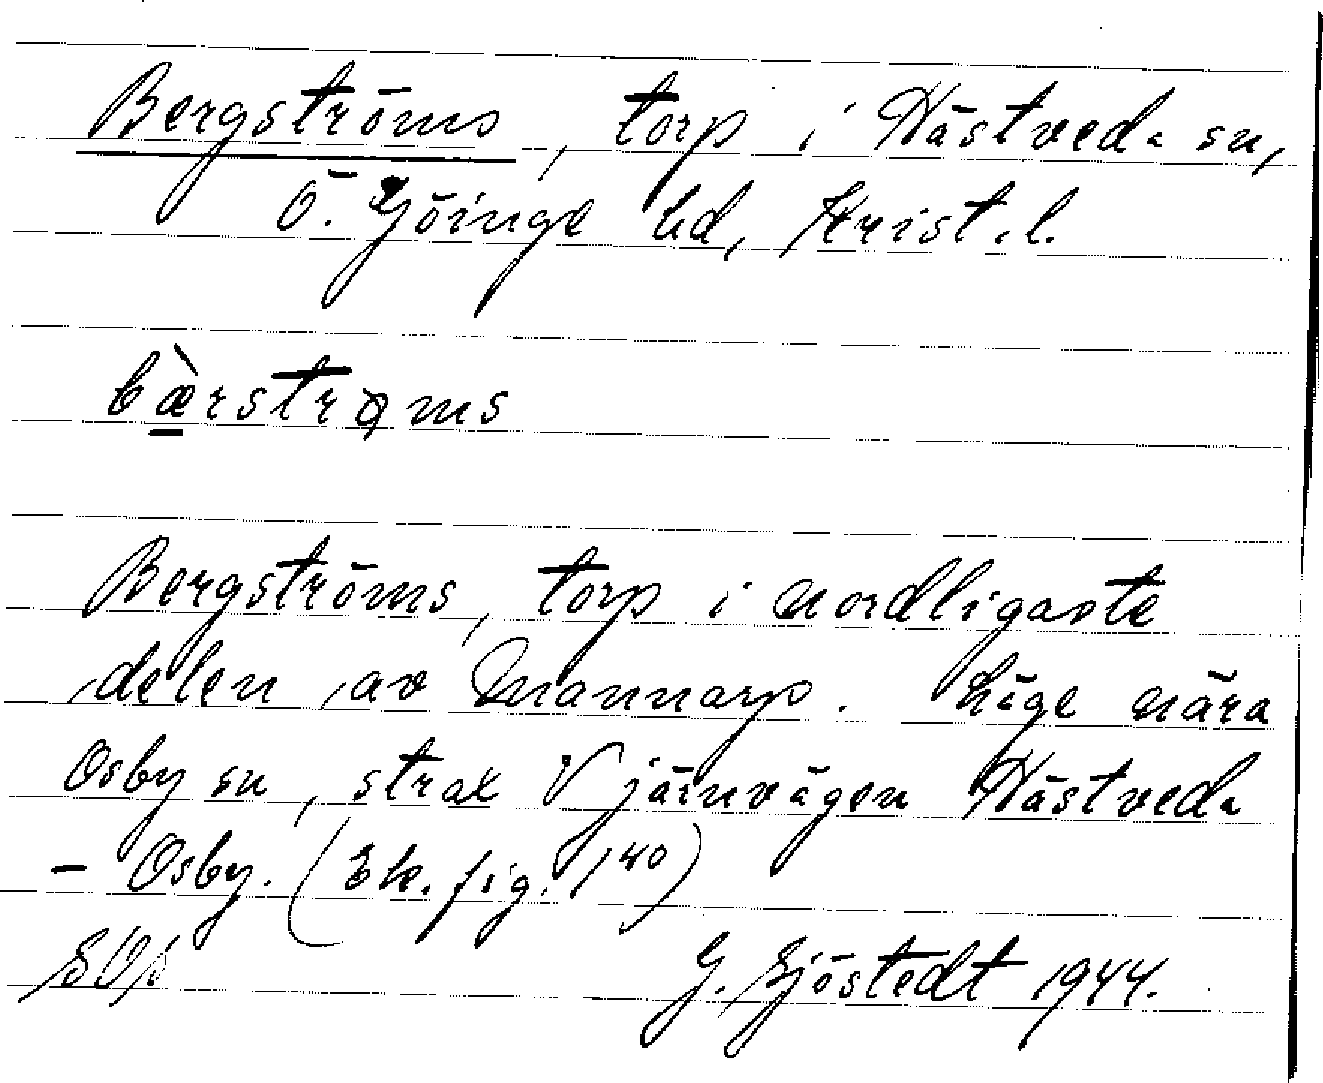 Bergströms, torp i Hästveda sn,
Ö. Göinge hd, Krist. l.
bæ̀rstrøms
Bergströms, torp i nordligaste
delen av Mannarp. Läge nära
Osby sn, strax V järnvägen Hästveda
- Osby. (Ek. fig. 140)
G. Sjöstedt 1944.